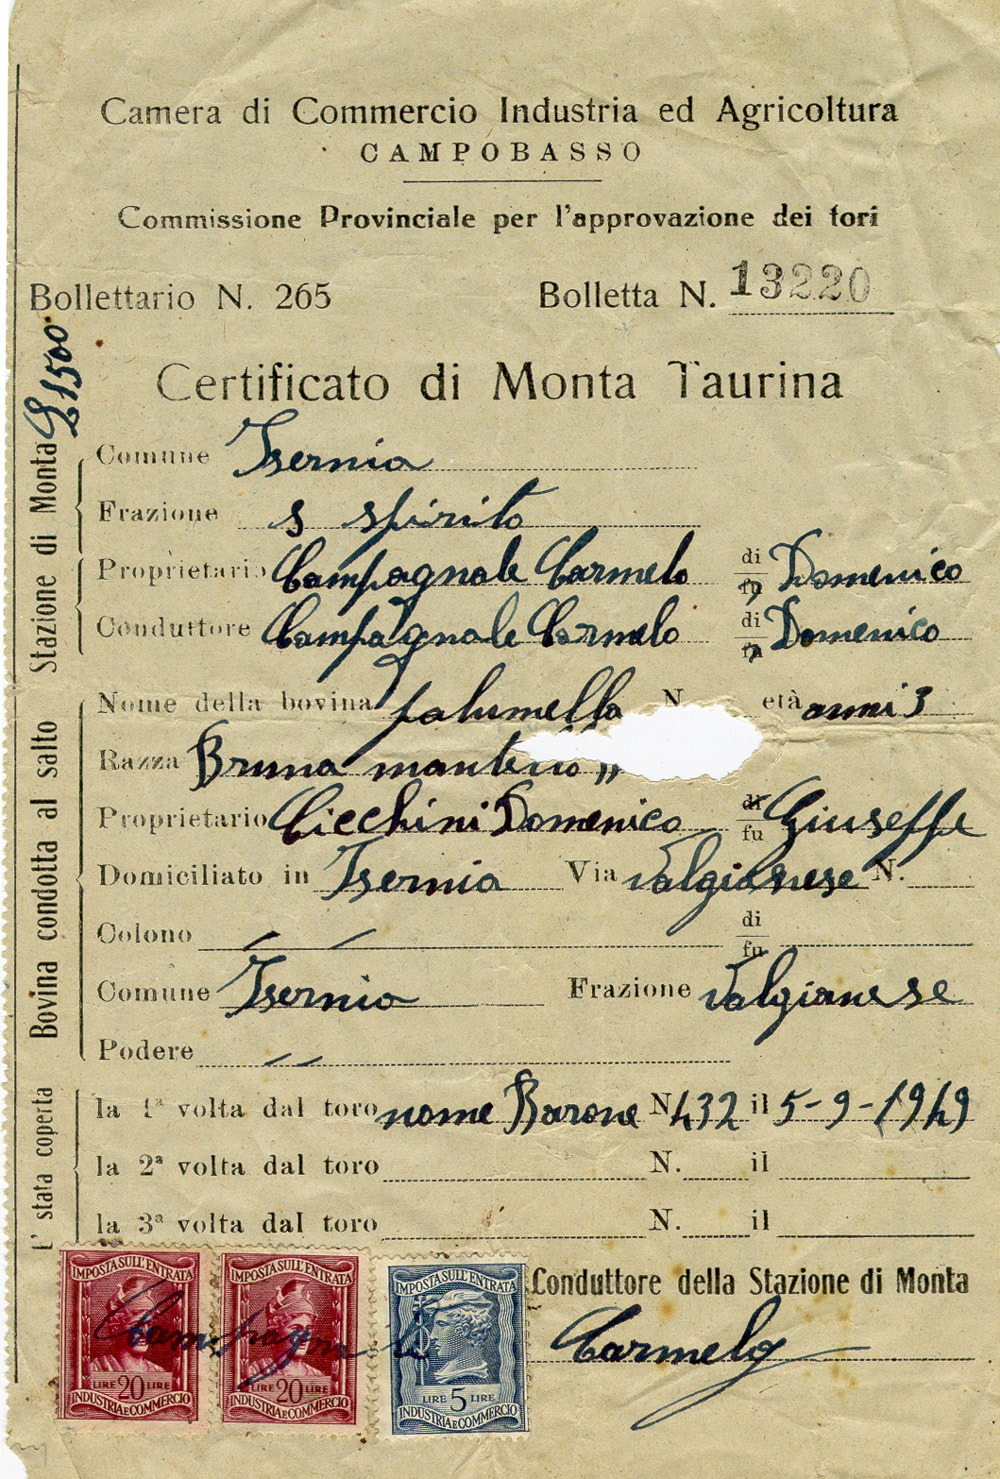 Camera di Commercio Industria ed Agricoltura
CAMPOBASSO
Commissione Provinciale per l'approvazione dei tori
Bollettario N. 265 Bolletta N. 13220
Certificato di Monta Taurina
£ 1500
Stazione di Monta
Comune Isernia
Frazione S Spirito
Proprietario Campagnale Carmelo di fu Domenico
Conduttore Campagnale Carmelo di fu Domenico
Bovina condotta al salto
Nome della bovina palumella N. età anni 3
Razza Bruna
Proprietario Cicchini Domenico di fu Giuseppe
Domiciliato in Isernia Via Valgianese N.
Colono di fu
Comune Isernia Frazione Valgianese
Podere
E' stata coperta
la 1ª volta dal toro nome Barone N. 432 il 5-9-1949
la 2ª volta dal toro N. il
la 3ª volta dal toro N. il
Conduttore della Stazione di Monta
Campagnale Carmelo
IMPOSTA SULL'ENTRATA
LIRE 20 LIRE
INDUSTRIA E COMMERCIO
IMPOSTA SULL'ENTRATA
LIRE 20 LIRE
INDUSTRIA E COMMERCIO
IMPOSTA SULL'ENTRATA
LIRE 5 LIRE
INDUSTRIA E COMMERCIO